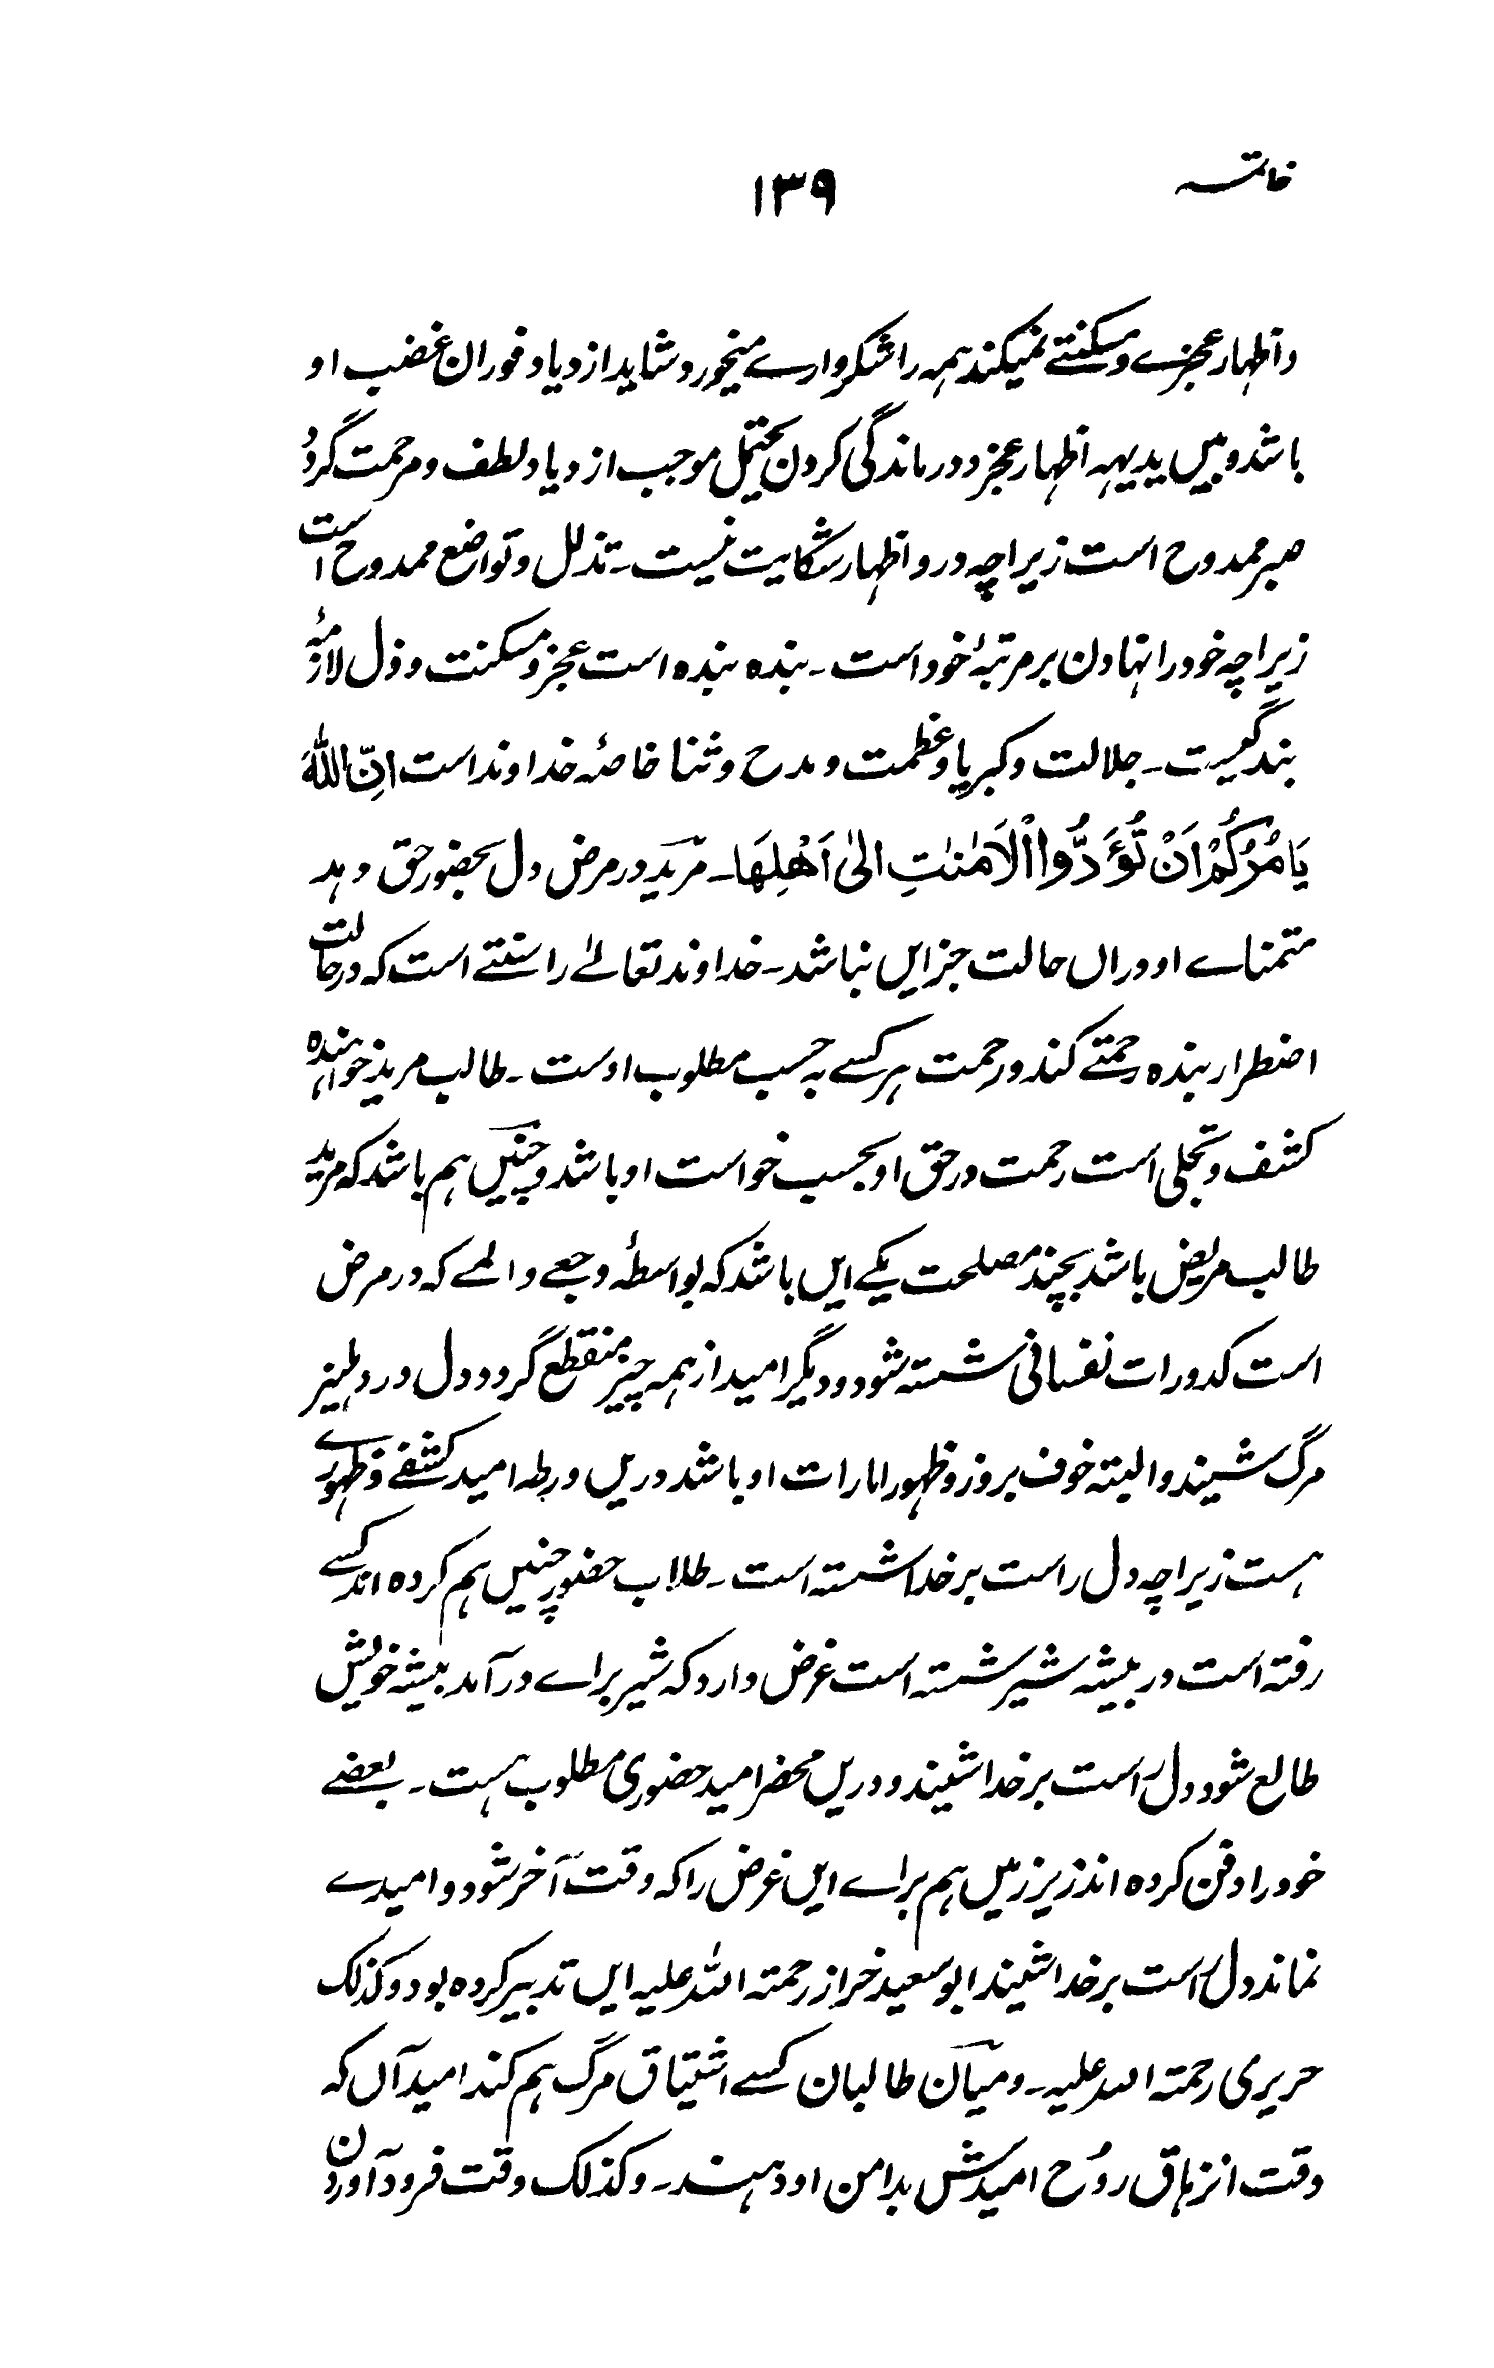 خاتمہ
۱۳۹
و اظہار عجزے و مسکنتے نمیکند ہمہ را شکروارے میخورد شاید ازدیاد فوران غضب او
باشد و بیں یدیہہ اظہار عجز و درماندگی کردن یحتمل موجب ازدیاد لطف و مرحمت گردد
صبر ممدوح است زیراچہ درو اظہار شکایت نیست۔ تذلل و تواضع ممدوح است
زیراچہ خود را نہادن بر مرتبۂ خود است۔ بندہ بندہ است عجز و مسکنت و ذل لازمۂ
بندگیست۔ جلالت و کبریا و عظمت و مدح و ثنا خاصۂ خداوند است اِنَّ اللّٰهَ
يَامُرُكُمْ اَنْ تُؤَدُّوا الْاَمٰنٰتِ الىٰ اَهْلِهَا۔ مرید در مرض دل بحضور حق دہد
متمناے او دراں حالت جز ایں نباشد۔ خداوند تعالےٰ را سنتے است کہ در حالت
اضطرار بندہ رحمتے کند و رحمت ہر کسے بہ حسب مطلوب اوست۔ طالب مرید خواہندہ
کشف و تجلی است رحمت در حق او بحسب خواست او باشد و چنیں ہم باشد کہ مرید
طالب مریض باشد بچند مصلحت یکے ایں باشد کہ بواسطۂ وجعے و المے کہ در مرض
است کدورات نفسانی شستہ شود و دیگر امید از ہمہ چیز منقطع گردد و دل در دہلیز
مرگ نشیند و البتہ خوف بروز و ظہور امارات او باشد دریں ورطہ امید کشفے و ظہورے
ہست زیراچہ دل راست بر خدا نشستہ است۔ طلاب حضور چنیں ہم کردہ اند کسے
رفتہ است در بیشہ شیر نشستہ است غرض دارد کہ شیر براے درآمد بیشہ خویش
طالع شود و دل راست بر خدا نشیند و دریں محضر امید حضوری مطلوب ہست۔ بعضے
خود را دفن کردہ اند زیر زمیں ہم براے ایں غرض را کہ وقت آخر شود و امیدے
نماند دل راست بر خدا نشیند ابو سعید خراز رحمتہ اللہ علیہ ایں تدبیر کردہ بود و کذلک
حریری رحمتہ اللہ علیہ۔ و میان طالبان کسے اشتیاق مرگ ہم کند امید آں کہ
وقت انزہاق رُوح امیدش بدامن او دہند۔ و کذلک وقت فرود آوردن